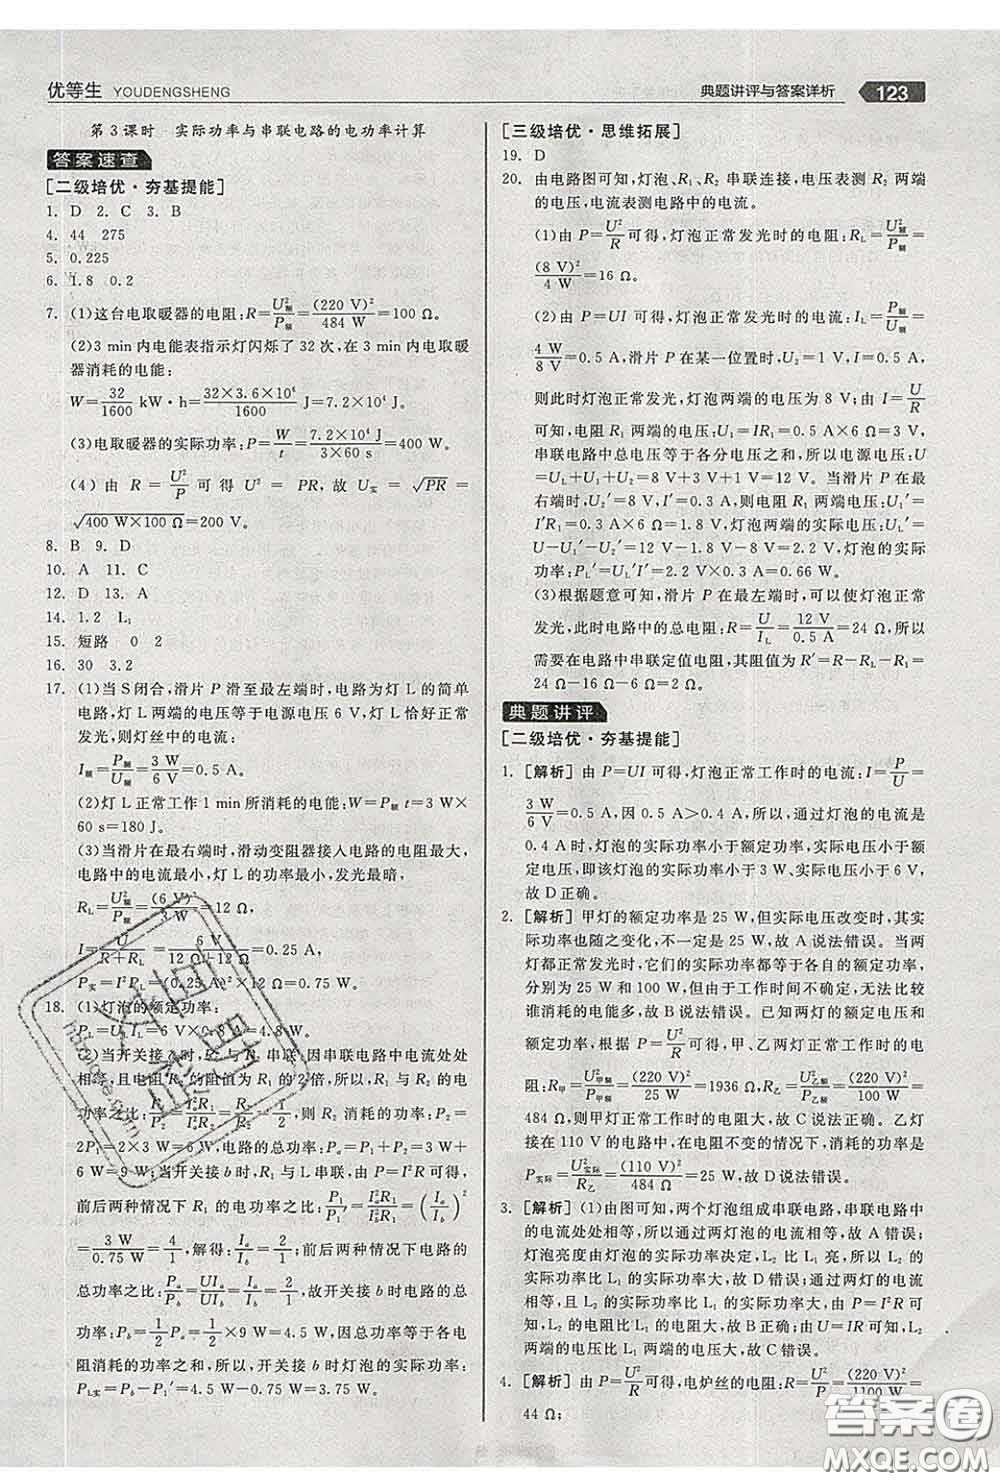 优等生 YOUDENGSHENG
典题讲评与答案详析 123
第3课时 实际功率与串联电路的电功率计算
答案速查
[二级培优·夯基提能]
1. D 2. C 3. B
4. 44 275
5. 0.225
6. 1.8 0.2
7. (1)这台电取暖器的电阻:R=U²额/P额=(220 V)²/484 W=100 Ω.
(2)3 min内电能表指示灯闪烁了32次,在3 min内电取暖
器消耗的电能:
W=32/1600 kW·h=32×3.6×10⁶/1600 J=7.2×10⁴ J.
(3)电取暖器的实际功率:P=W/t=7.2×10⁴ J/3×60 s=400 W.
(4)由R=U²/P可得U²=PR,故U实=√PR=
√400 W×100 Ω=200 V.
8. B 9. D
10. A 11. C
12. D 13. A
14. 1.2 L₁
15. 短路 0 2
16. 30 3.2
17. (1)当S闭合,滑片P滑至最左端时,电路为灯L的简单
电路,灯L两端的电压等于电源电压6 V,灯L恰好正常
发光,则灯丝中的电流:
I额=P额/U额=3 W/6 V=0.5 A.
(2)灯L正常工作1 min所消耗的电能:W=Pt=3 W×
60 s=180 J.
(3)当滑片在最右端时,滑动变阻器接入电路的电阻最大,
电路中的电流最小,灯L的功率最小,发光最暗,
R_L=U²额/P额=(6 V)²/3 W=12 Ω,
I=U/(R+R_L)=6 V/(12 Ω+12 Ω)=0.25 A,
P实=I²R_L=(0.25 A)²×12 Ω=0.75 W.
18. (1)灯泡的额定功率:
P_L=U_LI_L=6 V×0.8 A=4.8 W.
(2)当开关接a时,R₁与R₂串联,因串联电路中电流处处
相等,且电阻R₂的阻值为R₁的2倍,所以,两电阻的电
功率之比:P₁/P₂=I²ₐR₁/I²ₐR₂=R₁/R₂=1/2,则R₂消耗的功率:P₂=
2P₁=2×3 W=6 W,电路的总功率:Pₐ=P₁+P₂=3 W+
6 W=9 W;当开关接b时,R₁与L串联,由P=I²R可得,
前后两种情况下R₁的电功率之比:P₁/P₁′=I²ₐR₁/I²bR₁=(Iₐ/Ib)²
=3 W/0.75 W=4/1,解得:Iₐ/Ib=2/1;前后两种情况下电路的
总功率之比:Pₐ/Pb=UIₐ/UIb=Iₐ/Ib=2/1,则开关接b时电路的
总功率:Pb=1/2 Pₐ=1/2×9 W=4.5 W,因总功率等于各电
阻消耗的功率之和,所以,开关接b时灯泡的实际功率:
P_L实=Pb−P₁′=4.5 W−0.75 W=3.75 W.
[三级培优·思维拓展]
19. D
20. 由电路图可知,灯泡、R₁、R₂串联连接,电压表测R₂两端
的电压,电流表测电路中的电流。
(1)由P=U²/R可得,灯泡正常发光时的电阻:R_L=U²额/P额=
(8 V)²/4 W=16 Ω.
(2)由P=UI可得,灯泡正常发光时的电流:I_L=P额/U额=
4 W/8 V=0.5 A,滑片P在某一位置时,U₂=1 V,I=0.5 A,
则此时灯泡正常发光,灯泡两端的电压为8 V;由I=U/R
可知,电阻R₁两端的电压:U₁=IR₁=0.5 A×6 Ω=3 V,
串联电路中总电压等于各分电压之和,所以电源电压:U
=U_L+U₁+U₂=8 V+3 V+1 V=12 V. 当滑片P在最
右端时,U₂′=8 V,I′=0.3 A,则电阻R₁两端电压:U₁′=
I′R₁=0.3 A×6 Ω=1.8 V,灯泡两端的实际电压:U_L′=
U−U₁′−U₂′=12 V−1.8 V−8 V=2.2 V,灯泡的实际
功率:P_L′=U_L′I′=2.2 V×0.3 A=0.66 W.
(3)根据题意可知,当滑片P在最左端时,灯泡应正常
发光,此时电路中的总电阻:R=U/I_L=12 V/0.5 A=24 Ω,所以
需要在电路中串联定值电阻,其阻值R′=R−R_L−R₁=
24 Ω−16 Ω−6 Ω=2 Ω.
典题讲评
[二级培优·夯基提能]
1. [解析] 由P=UI可得,灯泡正常工作时的电流:I=P/U=
3 W/6 V=0.5 A,因0.5 A>0.4 A,所以,通过灯泡的电流是
0.4 A时,灯泡的实际功率小于额定功率,实际电压小于额定
电压,即该灯泡的实际功率小于3 W,实际电压小于6 V,
故D正确。
2. [解析] 甲灯的额定功率是25 W,但实际电压改变时,其实
际功率也随之变化,不一定是25 W,故A说法错误。当两
灯都正常发光时,它们的实际功率都等于各自的额定功率,
分别为25 W和100 W,但由于工作时间未知,无法比较
谁消耗的电能多,故B说法错误。已知两灯的额定电压和
额定功率,根据P=U²/R可得,甲、乙两灯正常工作时的电
阻:R甲=U²甲额/P甲额=(220 V)²/25 W=1936 Ω,R乙=U²乙额/P乙额=(220 V)²/100 W=
484 Ω,所以甲灯正常工作时的电阻大,故C说法正确。乙灯
接在110 V的电路中,在电阻不变的情况下,消耗的功率是
P实际=U²实际/R乙=(110 V)²/484 Ω=25 W,故D说法错误。
3. [解析] (1)由图可知,两个灯泡组成串联电路,串联电路中
的电流处处相等,所以通过两灯泡的电流相等,故A错误;
灯泡亮度由灯泡的实际功率决定,L₂比L₁亮,所以L₂的
实际功率比L₁的实际功率大,故D错误;通过两灯的电流
相等,且L₂的实际功率比L₁的实际功率大,由P=I²R
可知,L₂的电阻比L₁的电阻大,故B正确;由U=IR可知,
L₂两端的电压比L₁两端的电压大,故C错误。
4. [解析] 由P=U²/R可得,电炉丝的电阻R=U²额/P额=(220 V)²/1100 W=
44 Ω;
答案圈
MXQE.COM